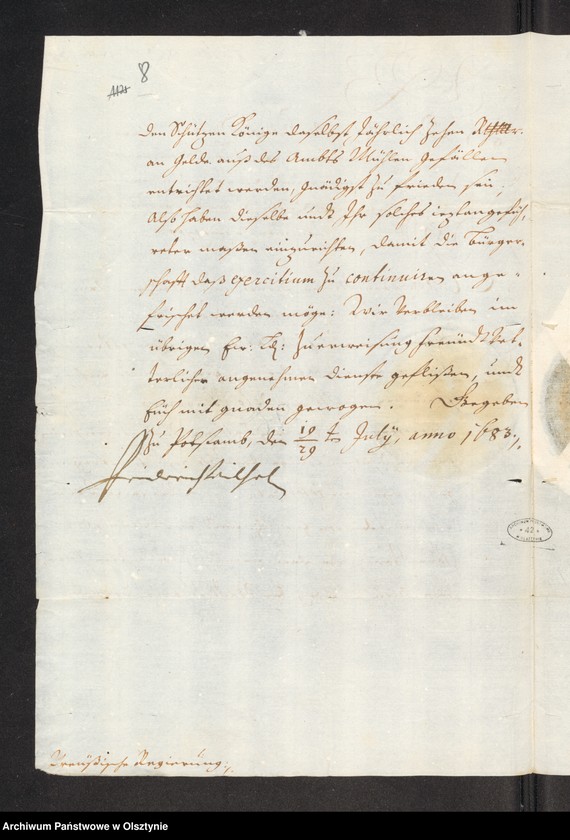 8
1171
den Schützen Könige daselbst Jährlich zehen
an Gelde auß des Ambts Mühlen Gefällen
entrichtet werden, gnädigst zu frieden sein,
Also haben dieselbe undt Ihr solches
maßen einzurichten, damit die Bürger-
schafft daß exercitium zu continuiren ange-
frischet werden möge: Wir Verbleiben im
übrigen Ew. Ld: zu erweisung freundt Vet-
terlicher angenehmer Dienste geflißen, undt
Euch mit gnaden gewogen. Gegeben
Zu Potstamb, den 19/29 ten July, anno 1683.
Friderich Wilhelm
Preüßische Regierung.
42
Archiwum Państwowe w Olsztynie